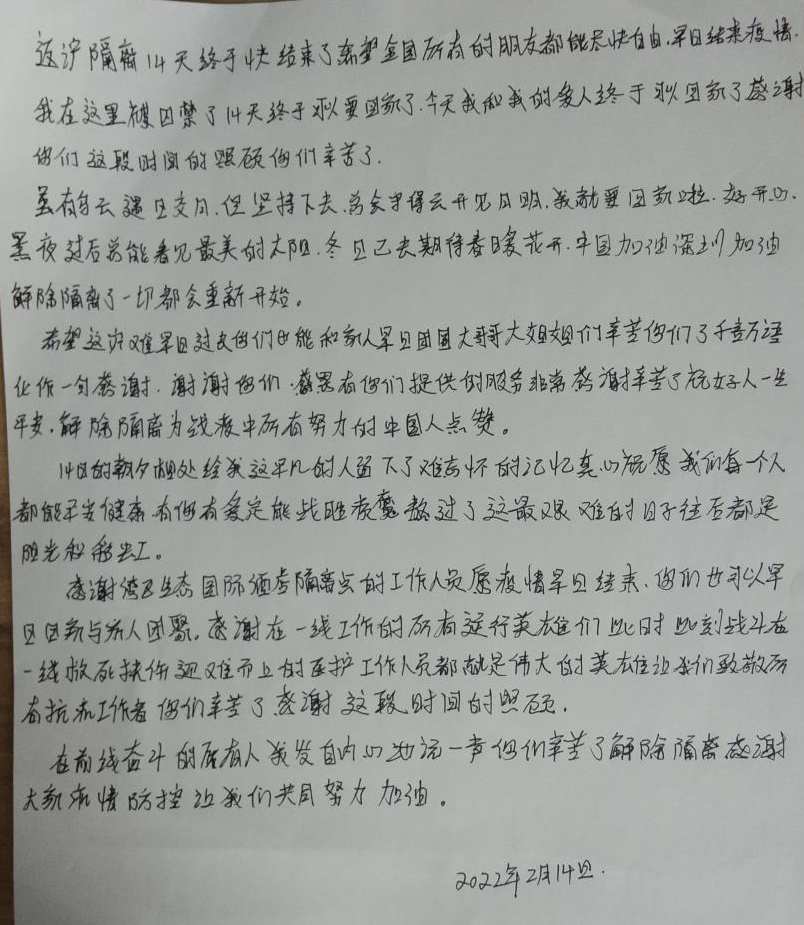 返沪隔离14天终于快结束了希望全国所有的朋友都能尽快自由.早日结束疫情.
我在这里被囚禁了14天终于可以要回家了.今天我和我的爱人终于可以回家了感谢
你们这段时间的照顾你们辛苦了.
虽有乌云遮日交月.但坚持下去.总会守得云开见月明.我就要回家啦.好开心.
黑夜过后总能看见最美的太阳.冬日已去期待春暖花开.中国加油深圳加油
解除隔离了一切都会重新开始。
希望这次难早日过去你们也能和家人早日团圆大哥哥大姐姐们辛苦你们了千言万语
化作一句感谢.谢谢你们.感恩有你们提供的服务非常感谢辛苦了祝好人一生
平安.解除隔离为战疫中所有努力的中国人点赞。
14日的朝夕相处给我这平凡的人留下了难忘怀的记忆真心祝愿我们每一个人
都能平安健康有你有爱定能战胜疫魔熬过了这最艰难的日子往后都是
阳光和彩虹。
感谢湾区生态国际酒店隔离点的工作人员愿疫情早日结束.你们也可以早
日回家与家人团聚.感谢在一线工作的所有逆行英雄们此时此刻战斗在
一线救死扶伤迎难而上的医护工作人员都就是伟大的英雄让我们致敬所
有抗疫工作者你们辛苦了感谢这段时间的照顾.
在前线奋斗的所有人我发自内心地说一声你们辛苦了解除隔离感谢
大家疫情防控让我们共同努力加油。
2022年2月14日.